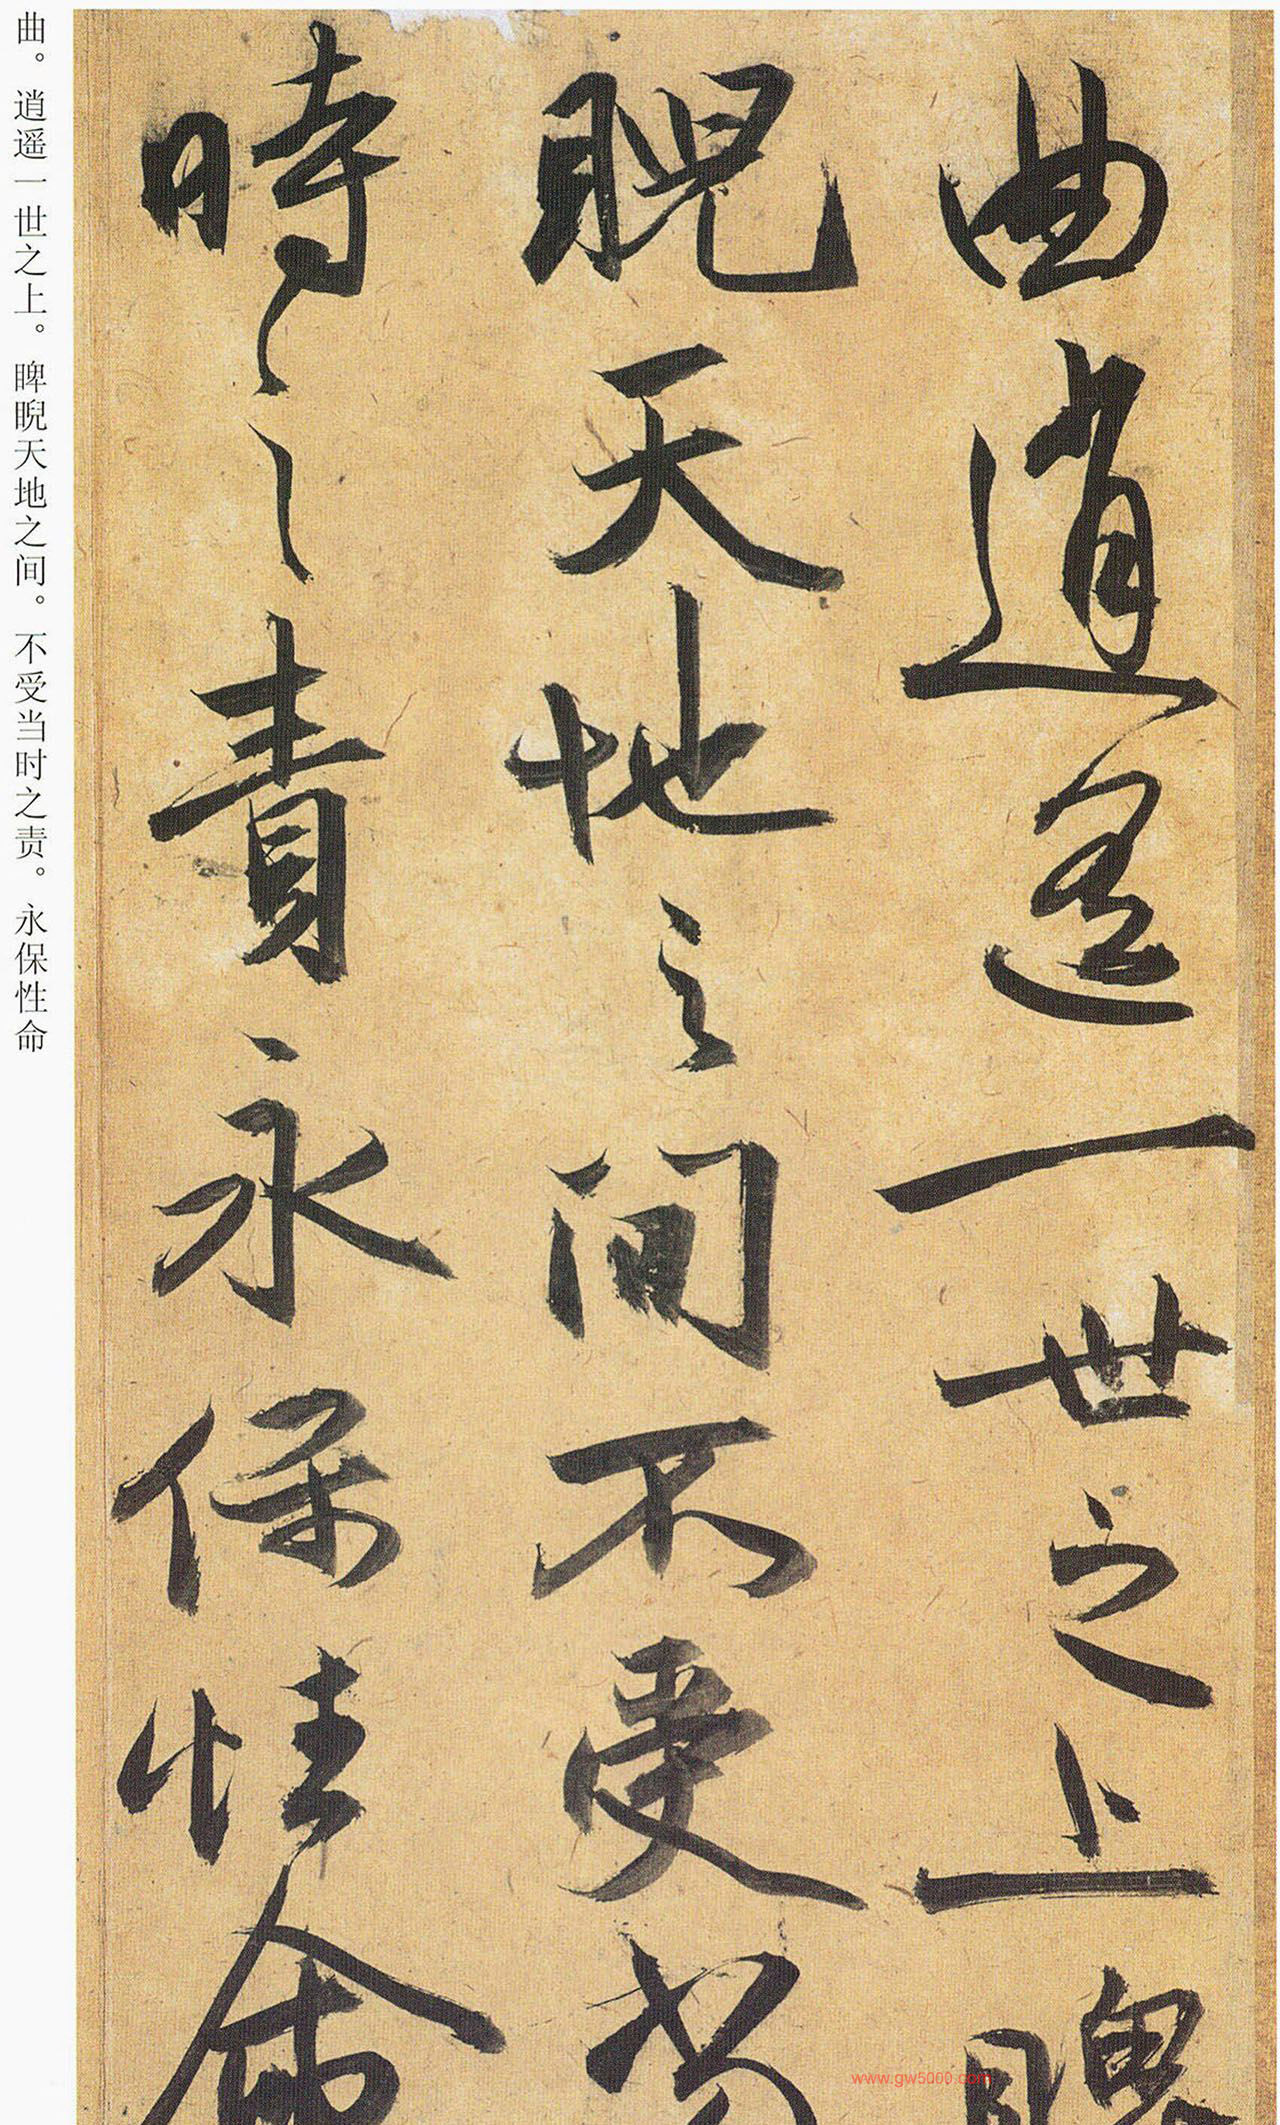 曲逍遥一世之上睥
睨天地之间不受当
時之責永保性命
曲。逍遥一世之上。睥睨天地之间。不受当时之责。永保性命
www.gw5000.com